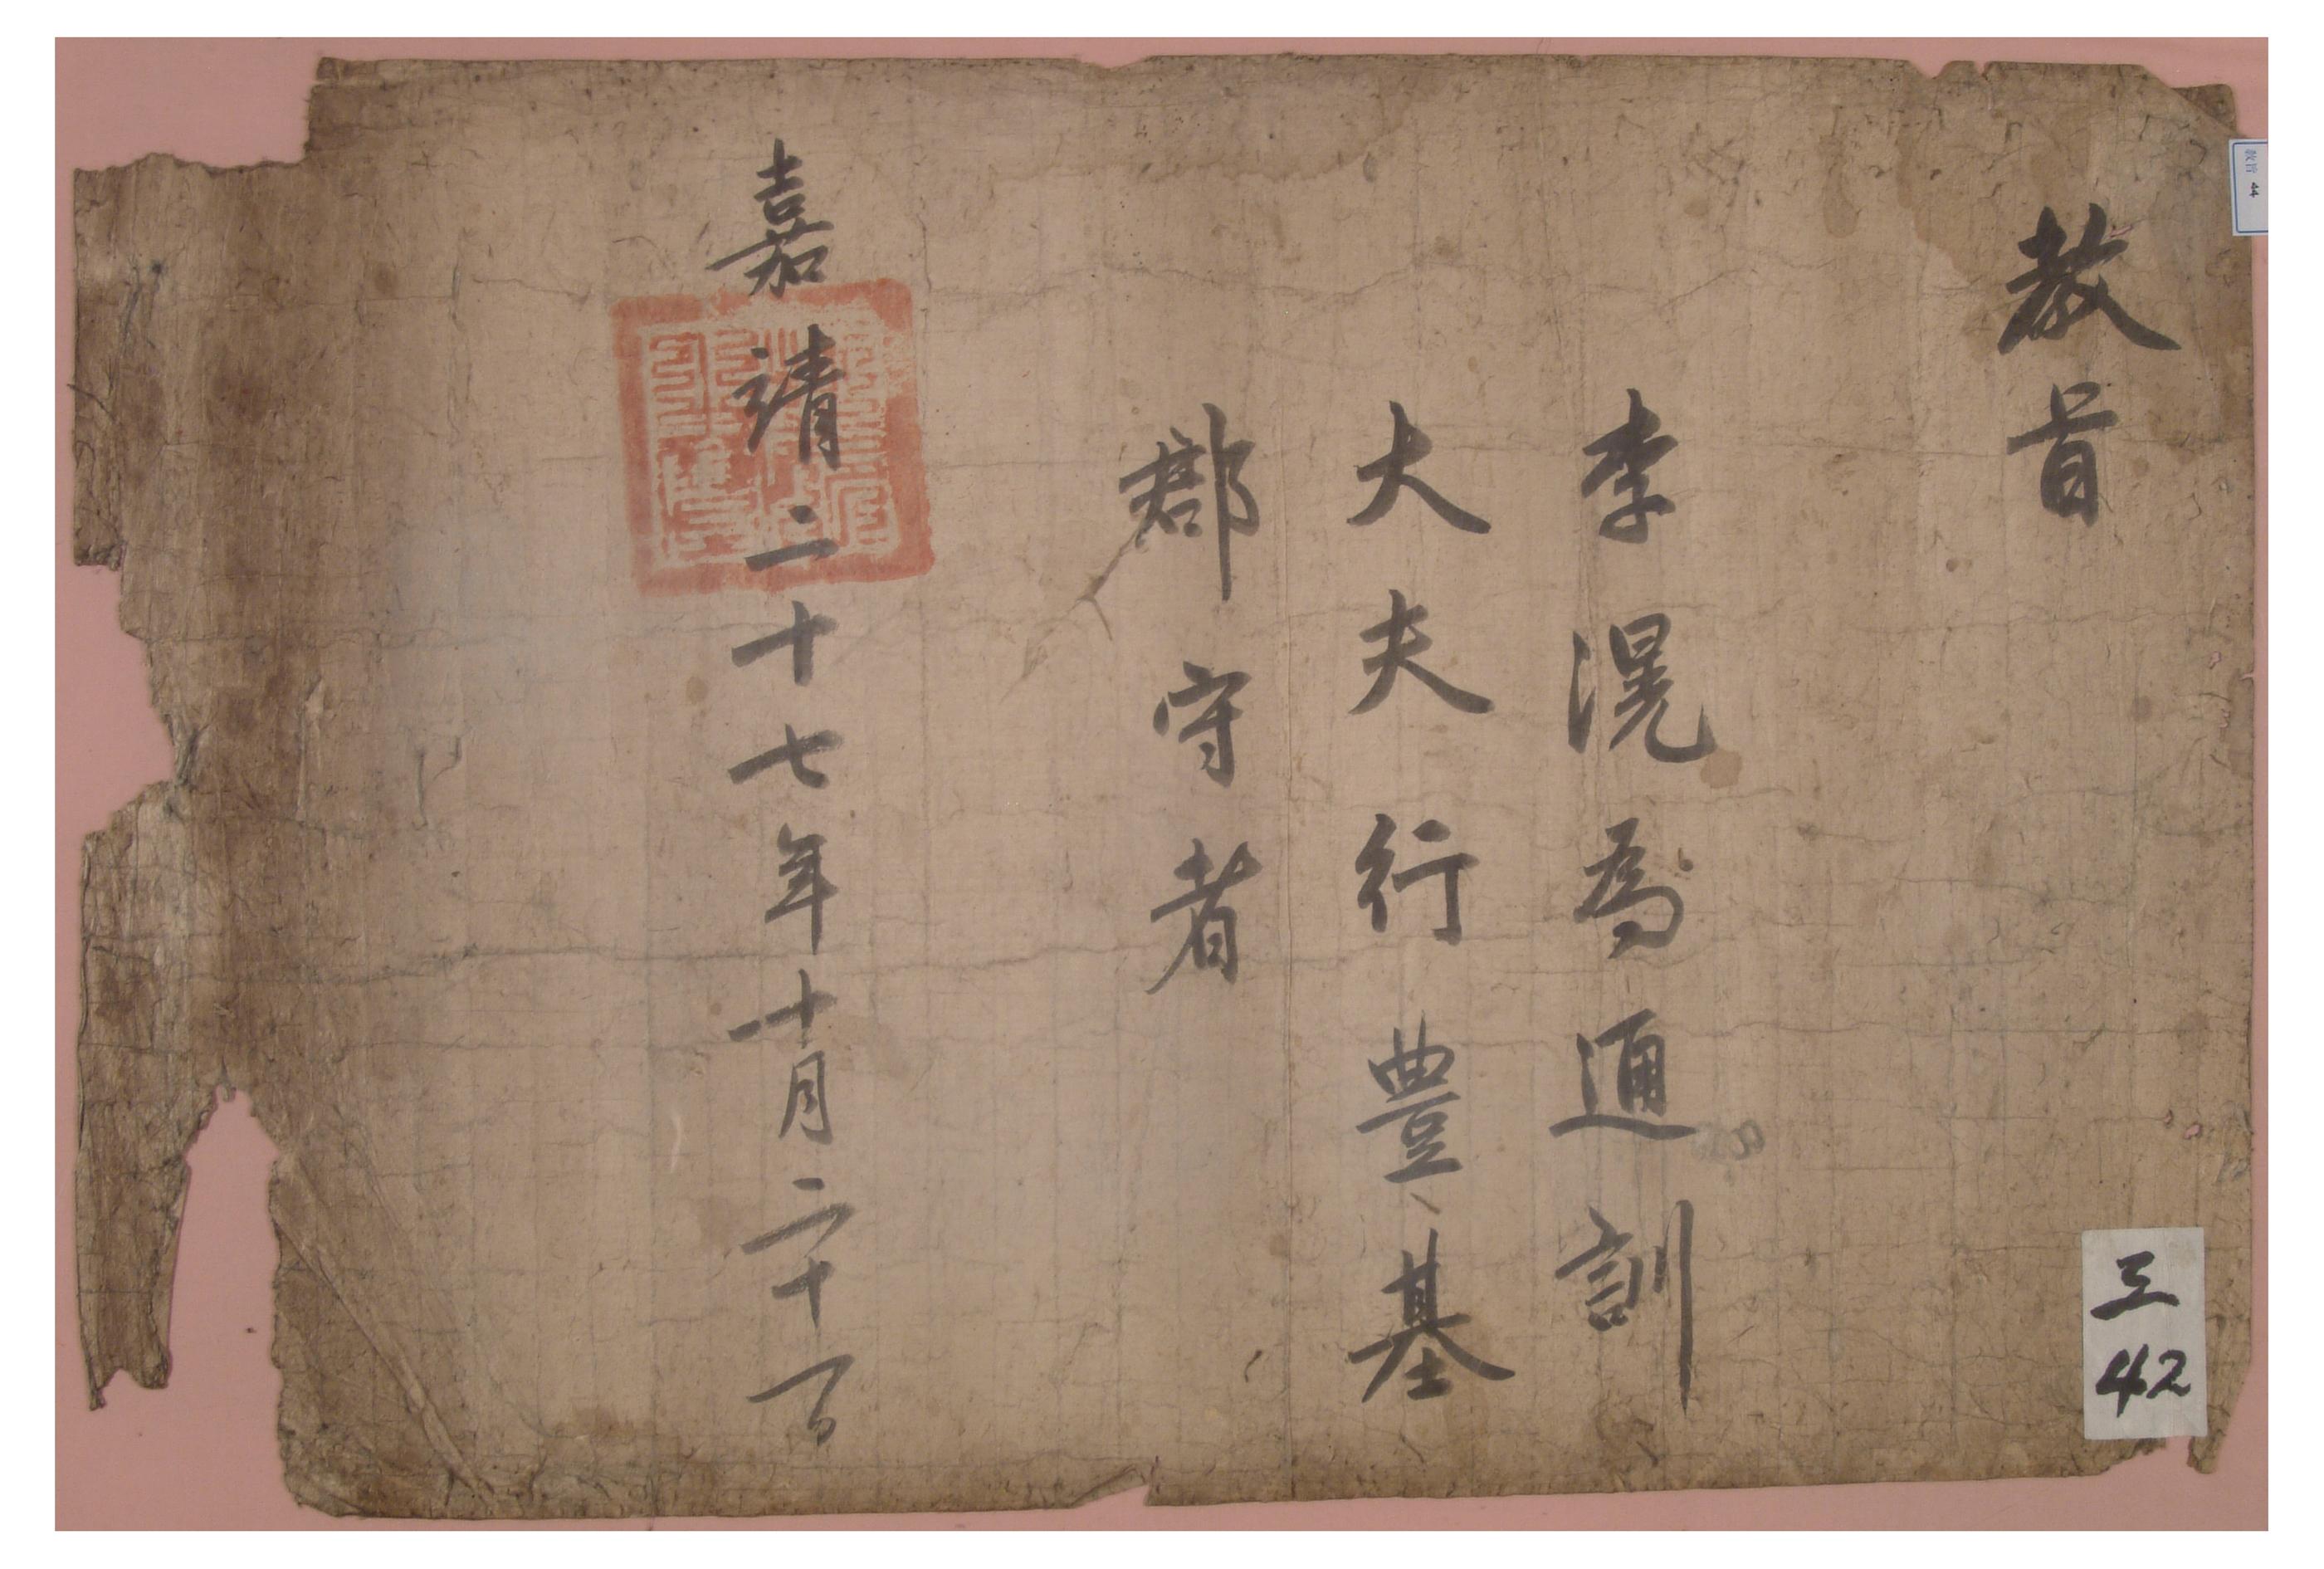 教旨
李滉爲通訓
大夫行豊基
郡守者
嘉靖二十七年十月二十一日
教旨 44
三
42